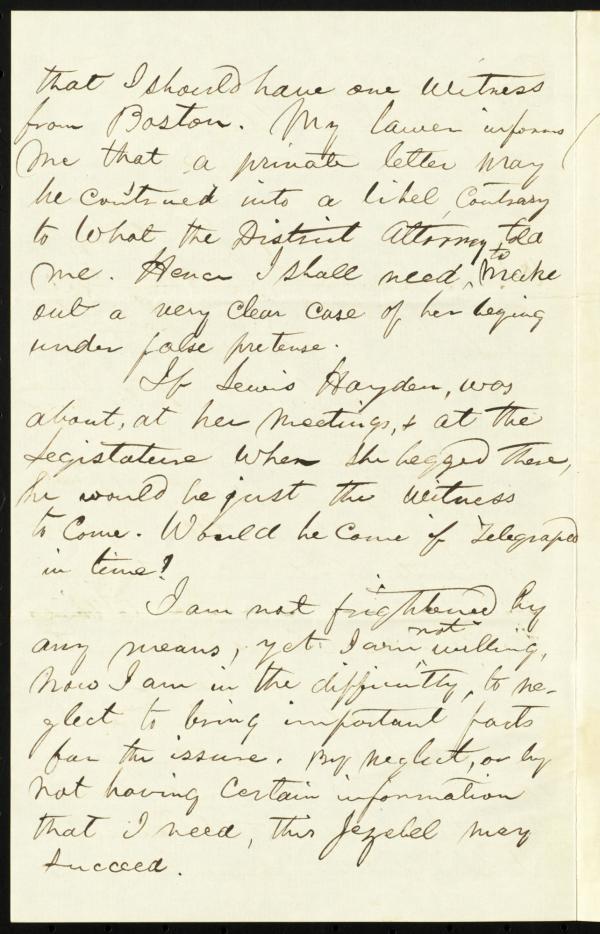 that I should have one witness
from Boston. My lawer informs
me that a private letter may
be construed into a libel, contrary
to what the District Attorney told
me. Hence I shall need, to make
out a very clear case of her beging
under false pretense.
If Lewis Hayden, was
about, at her meetings, & at the
Legistature when she begged there,
he would be just the witness
to come. Would he come if Telegraped
in time?
I am not frightened by
any means, yet I am not willing,
now I am in the difficultly, to ne-
glect to bring important facts
for the issure. By neglect, or by
not having certain information
that I need, this Jezebel may
succeed.